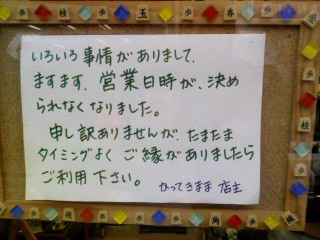 いろいろ事情がありまして、
ますます、営業日時が、決め
られなくなりました。
申し訳ありませんが、たまたま
タイミングよく ご縁がありましたら
ご利用下さい。 かってきまま 店主